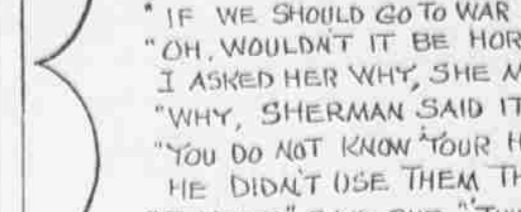 " IF WE SHOULD GO TO WAR
"OH, WOULDN'T IT BE HOR
I ASKED HER WHY, SHE
"WHY, SHERMAN SAID IT
"YOU DO NOT KNOW YOUR H
HE DIDN'T USE THEM TH